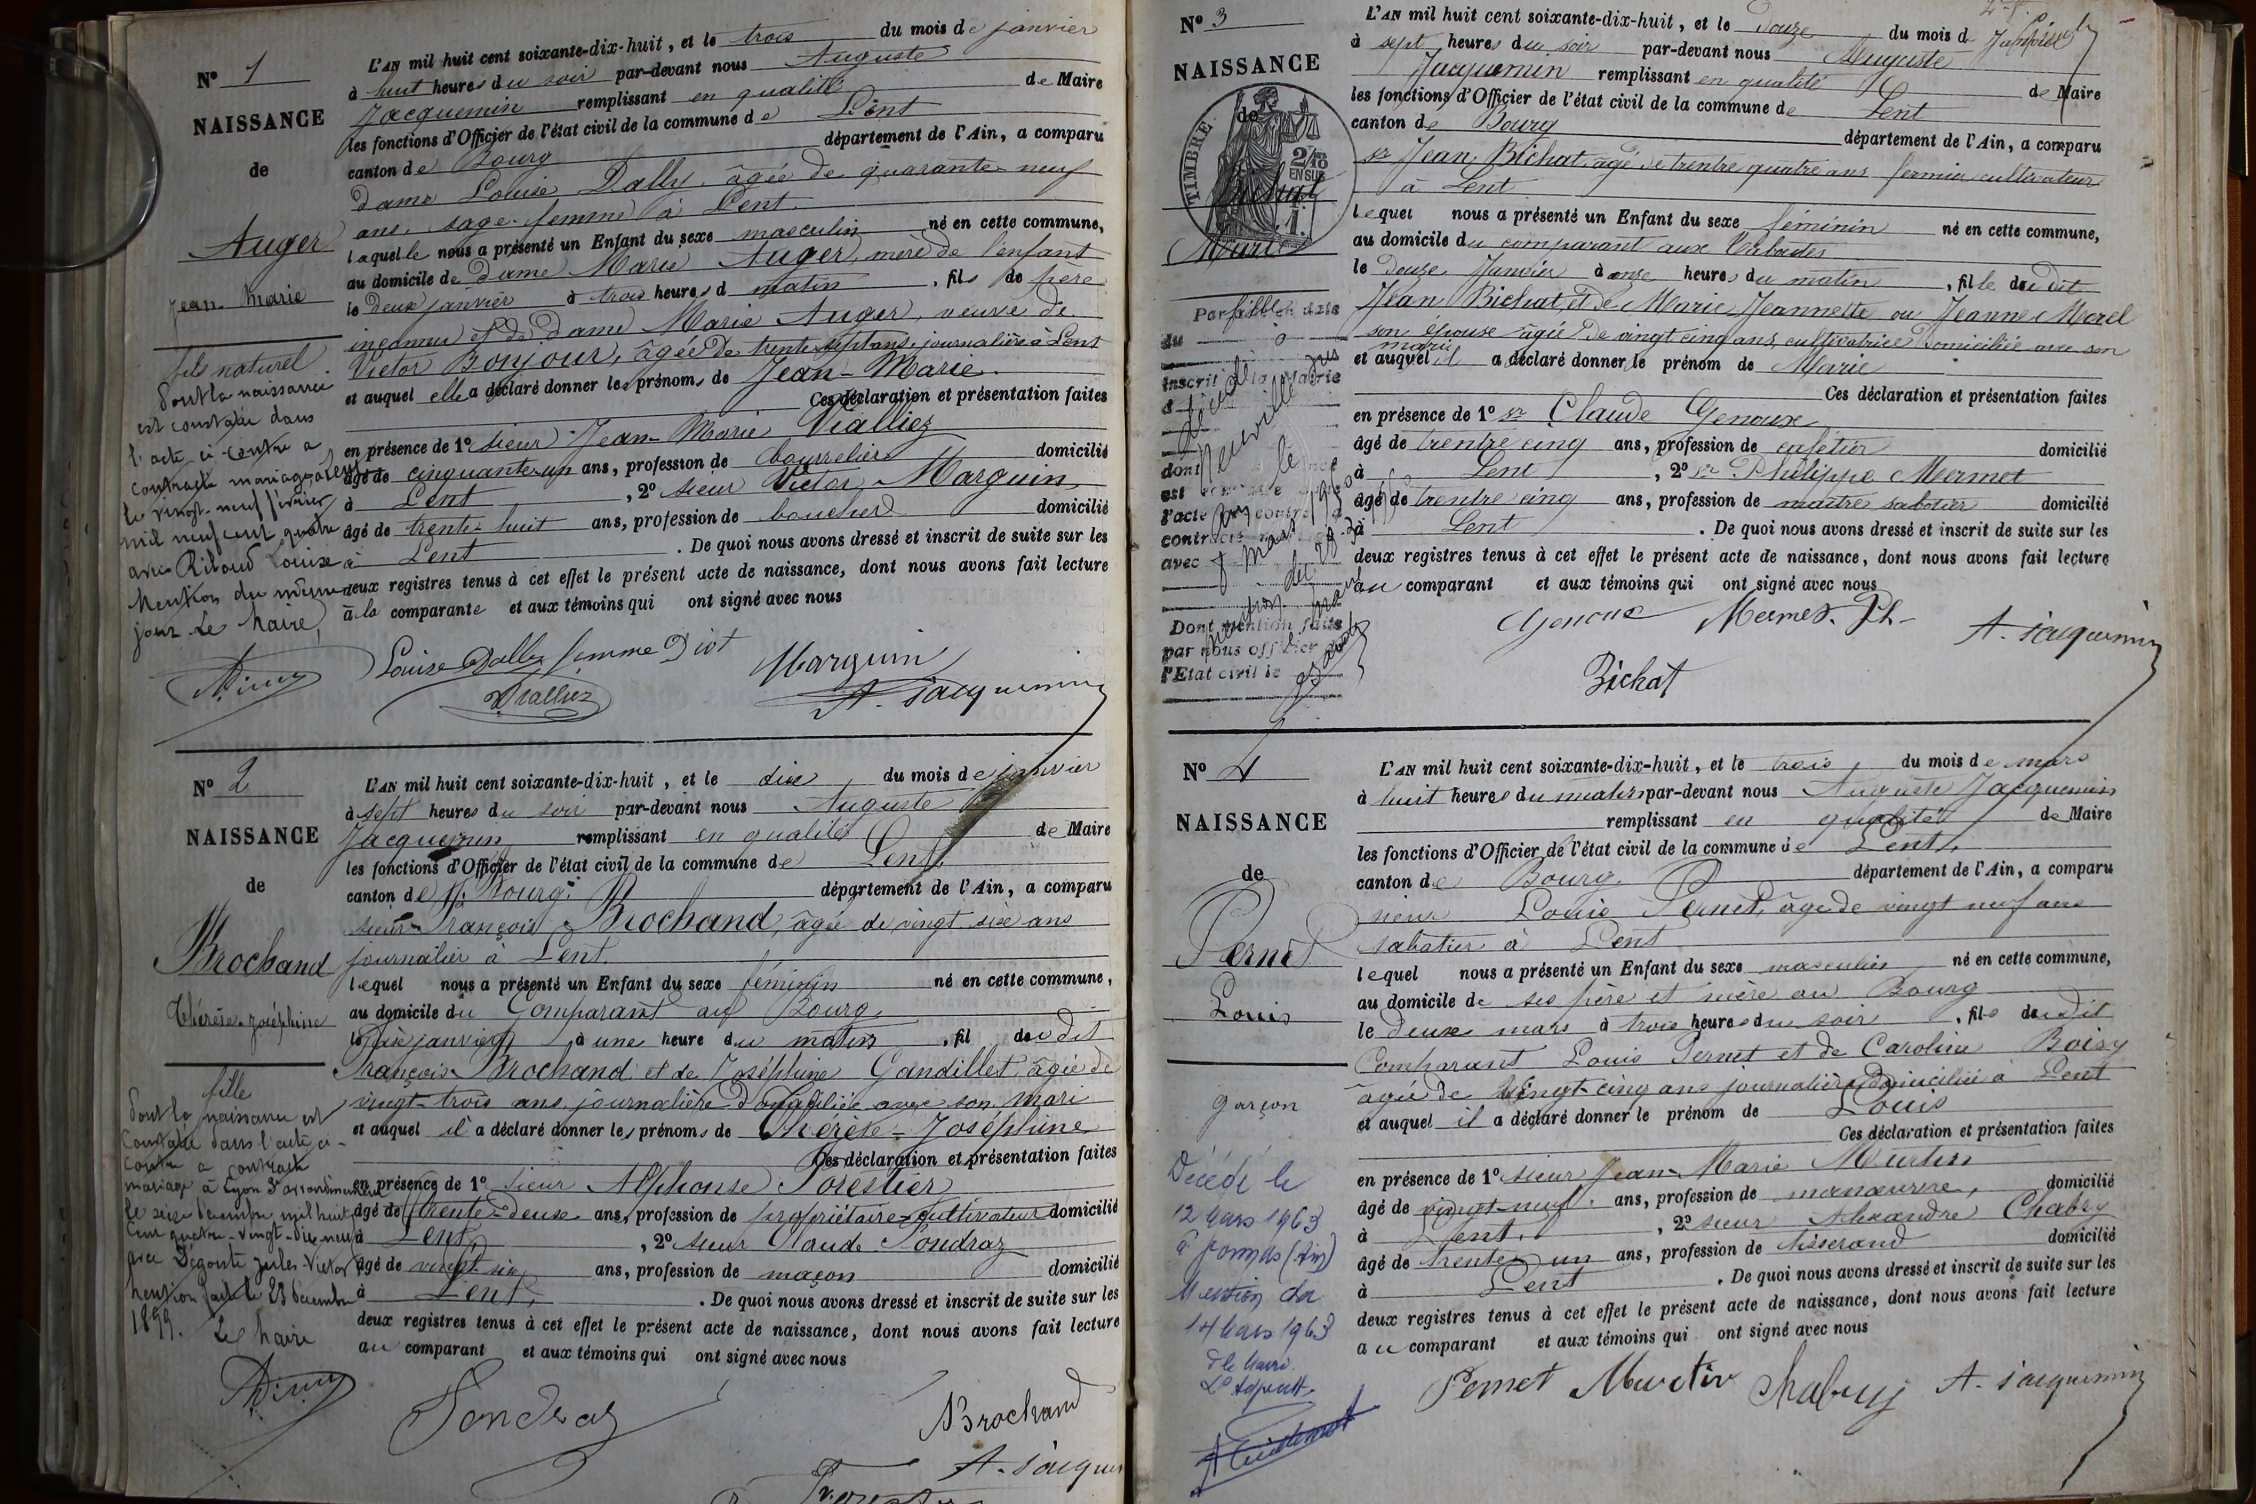 N° 1
NAISSANCE
de
Auger
Jean Marie
fils naturel
Dont la naissance
est constatée dans
l'acte ci-contre a
contracté mariage à Lent
le vingt-neuf février
mil neuf cent quatre
avec Ribaud Louise
Mention du même
jour Le Maire,
L'AN mil huit cent soixante-dix-huit, et le trois du mois de janvier
à huit heures du soir par-devant nous Auguste
Jacquemin remplissant en qualité de Maire
les fonctions d'Officier de l'état civil de la commune de Lent
canton de Bourg département de l'Ain, a comparu
dame Louise Dally, âgée de quarante neuf
ans, sage-femme à Lent.
laquelle nous a présenté un Enfant du sexe masculin né en cette commune,
au domicile de dame Marie Auger, mère de l'enfant
le deux janvier à trois heures d matin, fils de père
inconnu et de dame Marie Auger, veuve de
Victor Bonjour, âgée de trente sept ans, journalière à Lent
et auquel elle a déclaré donner les prénoms de Jean-Marie.
Ces déclaration et présentation faites
en présence de 1° sieur Jean-Marie Vialliez
âgé de cinquante-un ans, profession de bourrelier domicilié
à Lent, 2° sieur Victor Marguin
âgé de trente-huit ans, profession de boucher domicilié
à Lent. De quoi nous avons dressé et inscrit de suite sur les
deux registres tenus à cet effet le présent acte de naissance, dont nous avons fait lecture
à la comparante et aux témoins qui ont signé avec nous
Louise Dally femme Diot
Marguin
Vialliez
A. Jacquemin
N° 2
NAISSANCE
de
Brochand
Thérèse-Joséphine
fille
Dont la naissance est
constatée dans l'acte ci-
contre a contracté
mariage à Lyon 3e arrondissement
le seize décembre mil huit
cent quatre-vingt-dix-neuf
avec Dégoute Jules-Victor
Mention faite le 23 décembre
1899. Le Maire
L'AN mil huit cent soixante-dix-huit, et le dix du mois de janvier
à sept heures du soir par-devant nous Auguste
Jacquemin remplissant en qualité de Maire
les fonctions d'Officier de l'état civil de la commune de Lent,
canton de Bourg département de l'Ain, a comparu
sieur François Brochand, âgé de vingt six ans
journalier à Lent.
lequel nous a présenté un Enfant du sexe féminin né en cette commune,
au domicile du Comparant au Bourg
le dix janvier à une heure du matin, fil dudit
François Brochand et de Joséphine Gandillet, âgée de
vingt-trois ans, journalière domiciliée avec son mari
et auquel il a déclaré donner les prénoms de Thérèse-Joséphine
Ces déclaration et présentation faites
en présence de 1° sieur Alphonse Forestier
âgé de trente-deux ans, profession de propriétaire-cultivateur domicilié
à Lent, 2° sieur Claude Pondraz
âgé de vingt-six ans, profession de maçon domicilié
à Lent. De quoi nous avons dressé et inscrit de suite sur les
deux registres tenus à cet effet le présent acte de naissance, dont nous avons fait lecture
au comparant et aux témoins qui ont signé avec nous
Pondraz
Brochand
A. Jacquem
N° 3
NAISSANCE
de
TIMBRE
2/10
EN SUS
Bichat
Marie
L'AN mil huit cent soixante-dix-huit, et le Douze du mois d Janvier
à sept heures du soir par-devant nous Auguste
Jacquemin remplissant en qualité de Maire
les fonctions d'Officier de l'état civil de la commune de Lent
canton de Bourg département de l'Ain, a comparu
sr Jean Bichat, âgé de trentre quatre ans fermier cultivateur
à Lent
lequel nous a présenté un Enfant du sexe féminin né en cette commune,
au domicile du comparant aux
le douze Janvier à onze heures du matin, fille dudit
Jean Bichat, et de Marie Jeannette ou Jeanne Morel
son épouse âgée de vingt cinq ans, cultivatrice domiciliée avec son
mari
et auquel il a déclaré donner le prénom de Marie
Ces déclaration et présentation faites
en présence de 1° sr Claude Genoux
âgé de trentre cinq ans, profession de cafetier domicilié
à Lent, 2° sr Philippe Mermet
âgé de trentre cinq ans, profession de maitre sabotier domicilié
à Lent. De quoi nous avons dressé et inscrit de suite sur les
deux registres tenus à cet effet le présent acte de naissance, dont nous avons fait lecture
au comparant et aux témoins qui ont signé avec nous
Dont mention faite
par nous officier
l'Etat civil le
Genoux
Mermet Ph.
A. Jacquemin
Bichat
N° 4
NAISSANCE
de
Pernet
Louis
garçon
Décédé le
12 Mars 1963
à Jonmas (Ain)
Mention du
14 Mars 1963
L'AN mil huit cent soixante-dix-huit, et le trois du mois de mars
à huit heures du matin par-devant nous Auguste Jacquemin
remplissant en qualité de Maire
les fonctions d'Officier de l'état civil de la commune de Lent,
canton de Bourg département de l'Ain, a comparu
sieur Louis Pernet, âgé de vingt neuf ans
sabatier à Lent
lequel nous a présenté un Enfant du sexe masculin né en cette commune,
au domicile de ses père et mère au Bourg
le deux mars à trois heures du soir, fils dudit
Comparant Louis Pernet et de Caroline Boisy
âgée de vingt-cinq ans journalière domiciliée à Lent
et auquel il a déclaré donner le prénom de Louis
Ces déclaration et présentation faites
en présence de 1° sieur Jean-Marie Murtin
âgé de vingt-neuf ans, profession de manœuvre, domicilié
à Lent, 2° sieur Alexandre Chabry
âgé de trente un ans, profession de tisserand domicilié
à Lent. De quoi nous avons dressé et inscrit de suite sur les
deux registres tenus à cet effet le présent acte de naissance, dont nous avons fait lecture
au comparant et aux témoins qui ont signé avec nous
Pernet Murtin Chabry A. Jacquemin